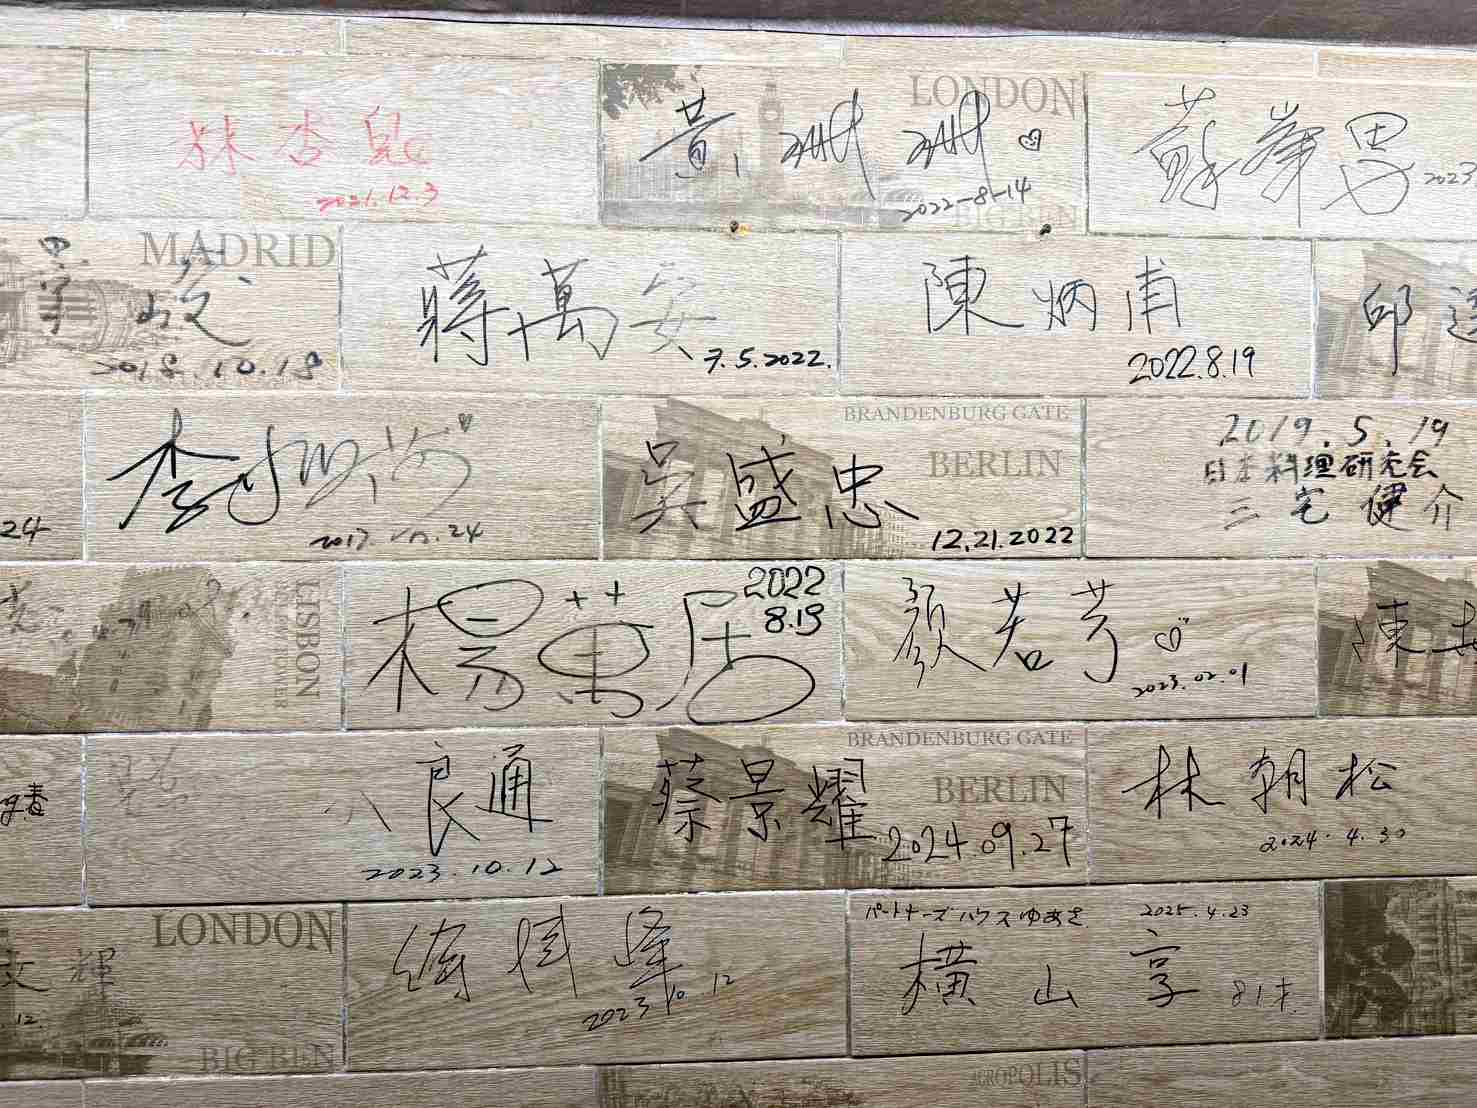 林杏兒
2021.12.3
LONDON
黃珊珊
2022-8-14
BIG BEN
蘇峯男
2023
MADRID
2018.10.18
蔣萬安
7.5.2022.
陳炳甫
2022.8.19
邱
24
李
2017.10.24
BRANDENBURG GATE
BERLIN
吳盛忠
12.21.2022
2019.5.19
日本料理研究会
三宅健介
LISBON
BELEM TOWER
2022
8.19
楊萬居
顏若芳
2023.02.01
陳
良通
2023.10.12
BRANDENBURG GATE
BERLIN
蔡景耀
2024.09.27
林朝松
2024.4.30
文輝
.12.
LONDON
BIG BEN
峰
2023 10.12
パートナーズハウスゆあさ 2025.4.23
横山享 81才.
ACROPOLIS